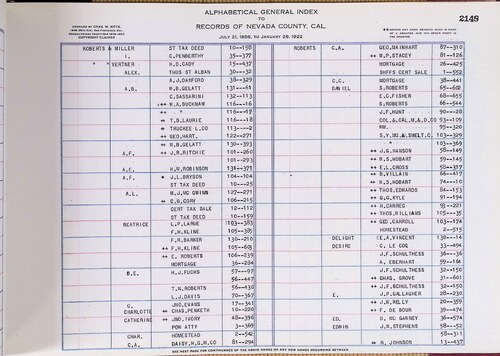 ALPHABETICAL GENERAL INDEX
TO
RECORDS OF NEVADA COUNTY, CAL.
JULY 21, 1856, TO JANUARY 26, 1922
2149
COMPILED BY CHAS. W. KITTS
COPYRIGHT CLAIMED
ROBERTS & MILLER ST TAX DEED 10--158
I. C.PENBERTHY 35--377
" " VERTNER H.D.CADY 15--437
ALEX. THOS ST ALBAN 30--32
A.J.DANFORD 38--329
A.B. H.B.GELATT 131--391
C.CASSARINI 132--113
W.A.BUCKNAM 116--16
" 116--17
++ T.B.LAURIE 116--18
++ TRUCKEE L.CO 113---2
++ GEO.HART. 122--271
H.B.GELATT 130--393
A.F. ++ J.R.RITCHIE 101--260
101--293
A.E. H.W.ROBINSON 131--370
A.F. ++ J.L.BRYSON 104--104
ST TAX DEED 10--25
A.L. H.J MC GWINN 127--271
++ C.H.CORY 106--215
CERT TAX SALE 12--112
ST TAX DEED 10--159
BEATRICE L.P.LARUE 103--383
F.H.KLINE 105--385
F.R.BARKER 130--210
++ F.H.KLINE 105--608
++ E. ROBERTS 106--239
MORTGAGE 36--284
B.E. H.J.FUCHS 57--97
56--447
T.N.ROBERTS 56--430
L.J.DAVIS 70--367
C. JNO.EVANS 17--341
CHARLOTTE ++ CHAS.PENNETH 10--220
CATHERINE ++ JNO.IVORY 48--390
POW ATTY 3--360
CHAR. HOMESTEAD 2--542
C.A. DAISY,H.G.M.CO 81--294
ROBERTS C.A. GEO.BAINHART 87--310
++ W.P.STACEY 81--126
MORTGAGE 26--425
SHFFS CERT SALE 1--552
C.C. MORTGAGE 38--441
DANIEL S.ROBERTS 65--602
E.C.FISHER 68--655
S.ROBERTS 66--544
J.F.HUNT 90--28
COL.& CAL.M.& D.CO 93--109
WM. 95--320
S.Y.MG.& SMELT.C. 103--329
" 103--369
++ J.G.HANSON 58--149
++ W.S.HOBART 59--145
++ E.L.CROSS 58--317
++ B.VILLAIN 66--417
++ W.S.HOBART 74--147
++ THOS.EDWARDS 84--153
++ G.G.KYLE 91--194
++ H.CARREG 93--221
++ THOS.WILLIAMS 105--35
++ GEO.CARROLL 103--174
HOMESTEAD 2--515
DELIGHT E.A.VINCENT 130--14
DESIRE C. LE COQ 33--494
J.F.SCHULTHESS 36--36
A. EBERHART 59--164
J.F.SCHULTHESS 32--150
++ CHAS. GROVE 31--601
++ J.F.SCHULTHESS 32--150
E. ++ J.F.GALLAGHER 28--230
++ J.H.RELY 20--359
++ F. DE BOUR 39--474
ED. D. MC GARNEY 36--574
EDWIN J.R.STEPHENS 58--52
58--311
++ R. JOHNSON 13--437
SEE NEXT PAGE FOR CONTINUANCE OF THE ABOVE NAMES OR ANY NEW NAMES OCCURRING BETWEEN